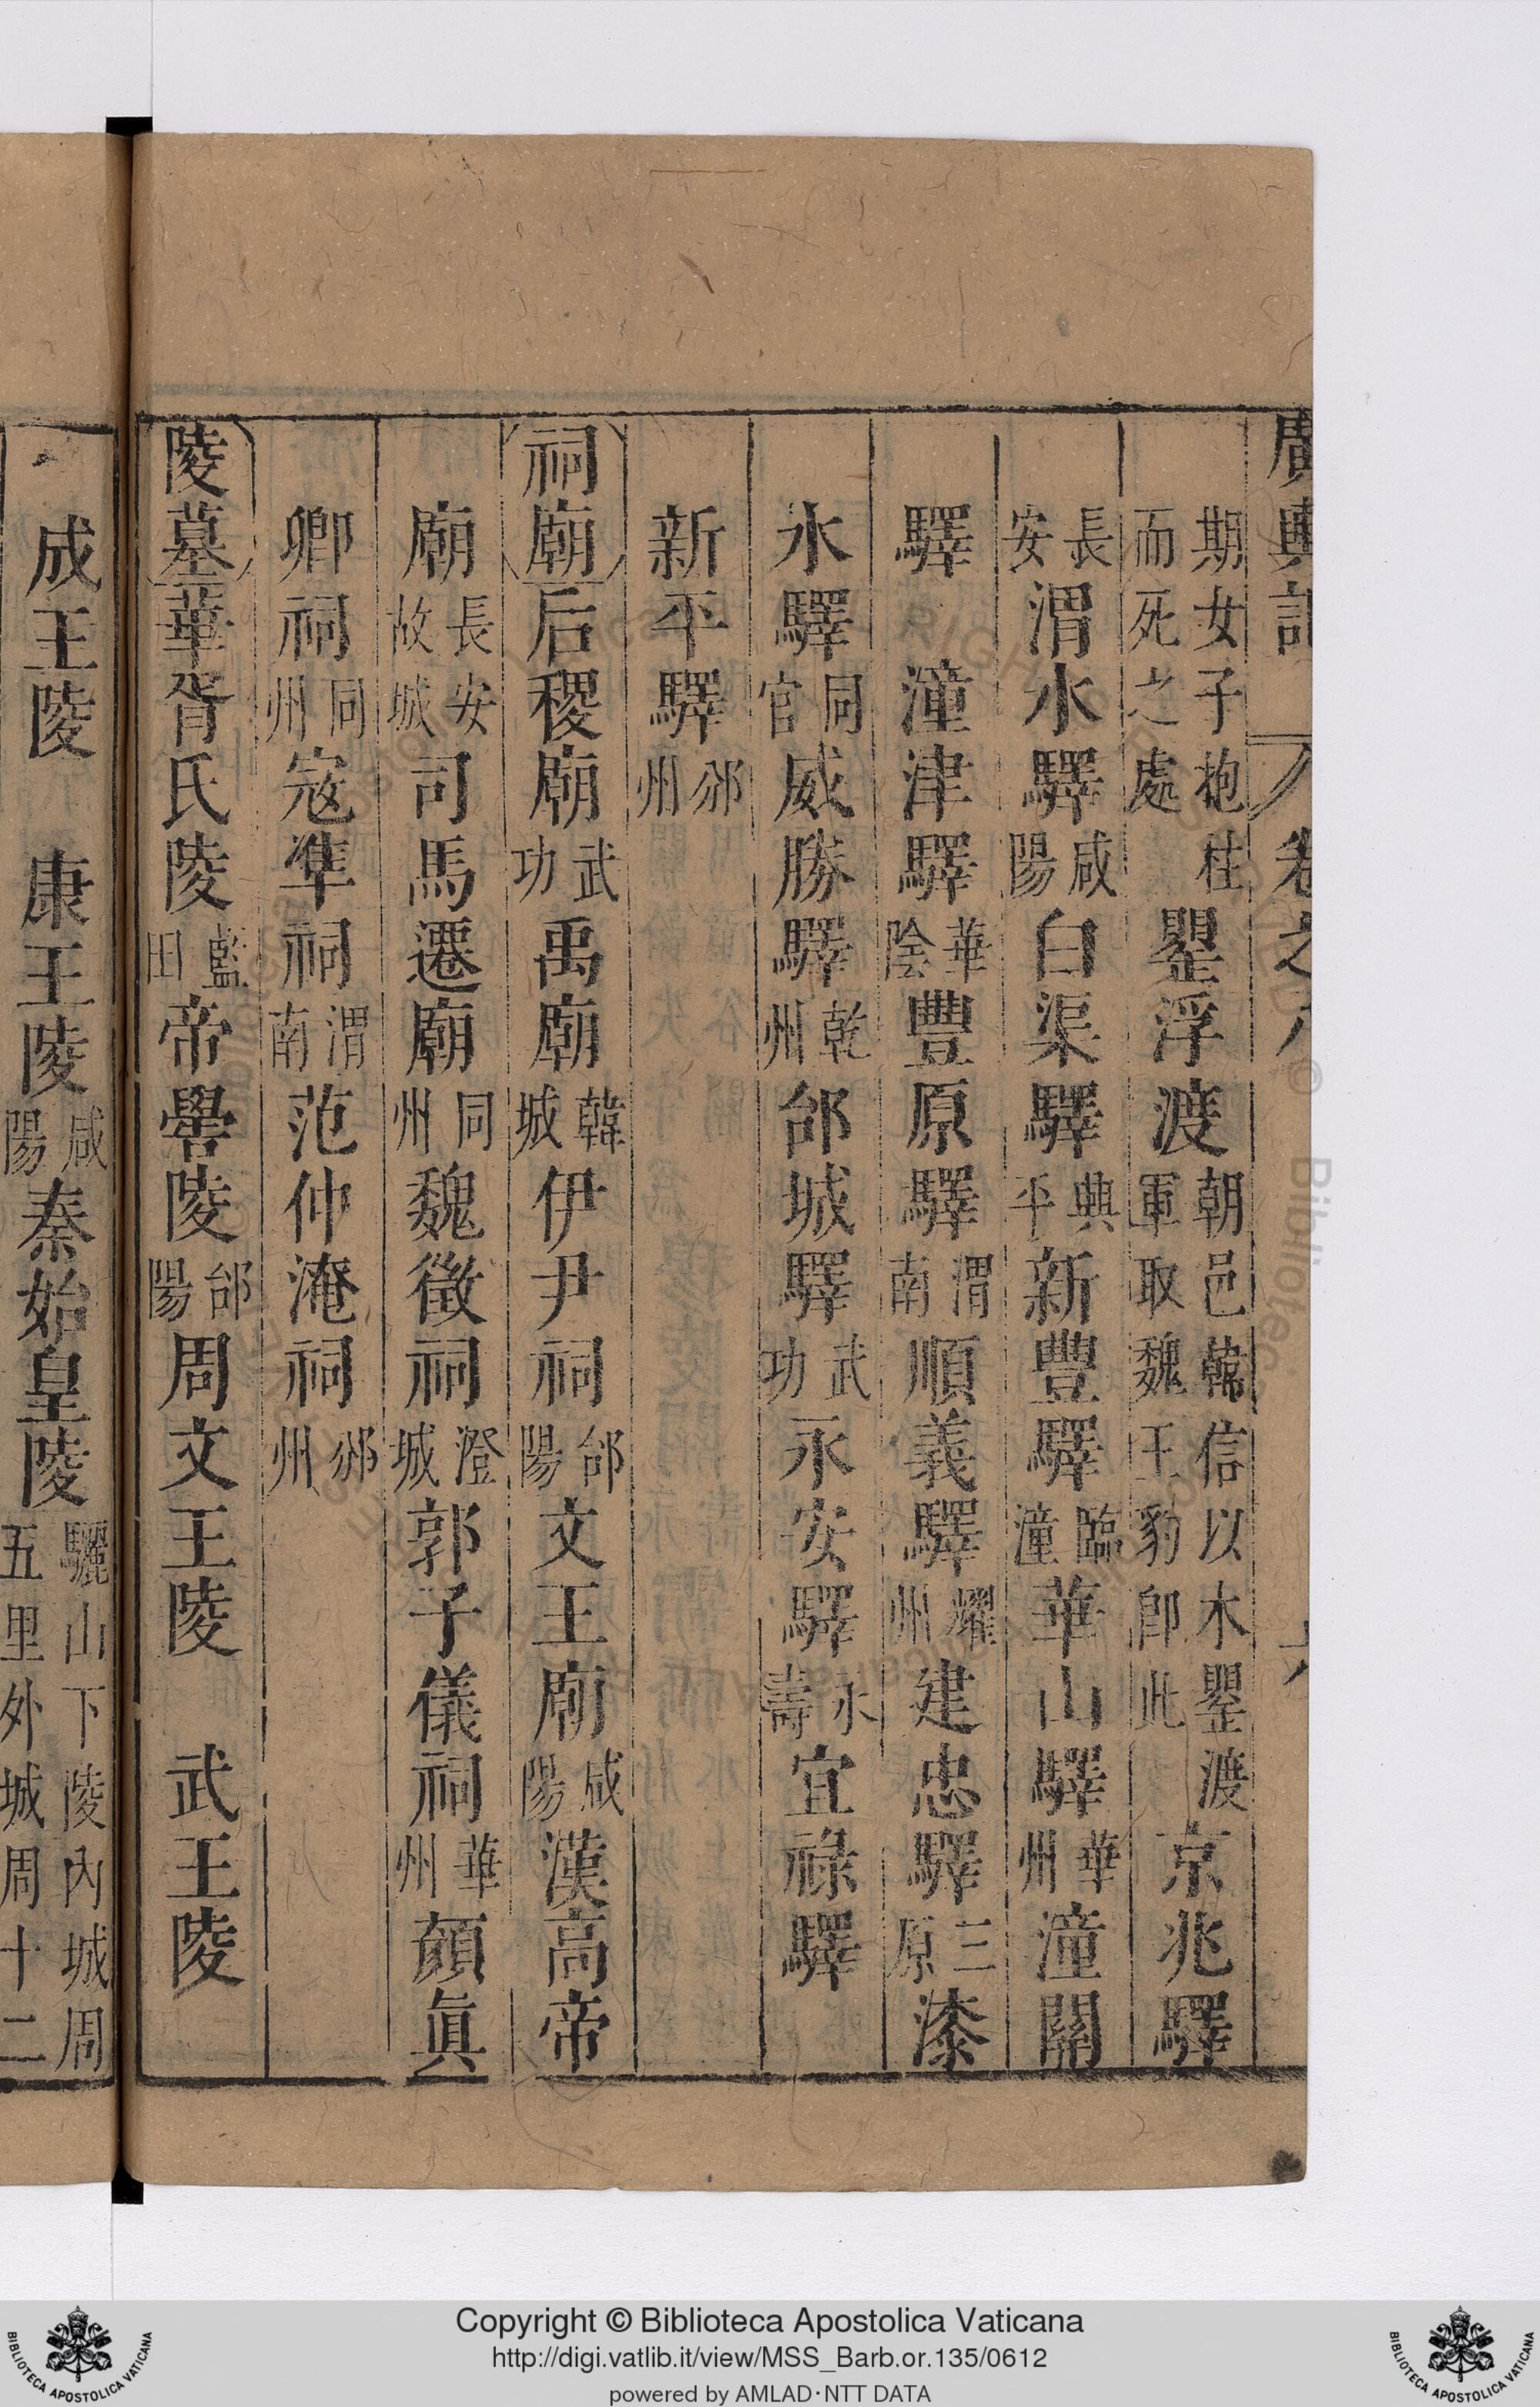 廣輿記 卷之八 六
期女子抱柱而死之處罌浮渡朝邑韓信以木罌渡軍取魏王豹卽此京兆驛
長安渭水驛咸陽白渠驛興平新豐驛臨潼華山驛華州潼關
驛 潼津驛華陰豐原驛渭南順義驛耀州建忠驛三原漆
水驛同官威勝驛乾州邰城驛武功永安驛永壽宜祿驛
新平驛邠州
祠廟后稷廟武功禹廟韓城伊尹祠郃陽文王廟咸陽漢高帝
廟長安故城司馬遷廟同州魏徵祠澄城郭子儀祠華州顏眞
卿祠同州寇準祠渭南范仲淹祠邠州
陵墓華胥氏陵藍田帝嚳陵郃陽周文王陵 武王陵
成王陵 康王陵咸陽秦始皇陵驪山下陵內城周五里外城周十二
Copyright © Biblioteca Apostolica Vaticana
http://digi.vatlib.it/view/MSS_Barb.or.135/0612
powered by AMLAD·NTT DATA
BIBLIOTECA APOSTOLICA VATICANA
BIBLIOTECA APOSTOLICA VATICANA